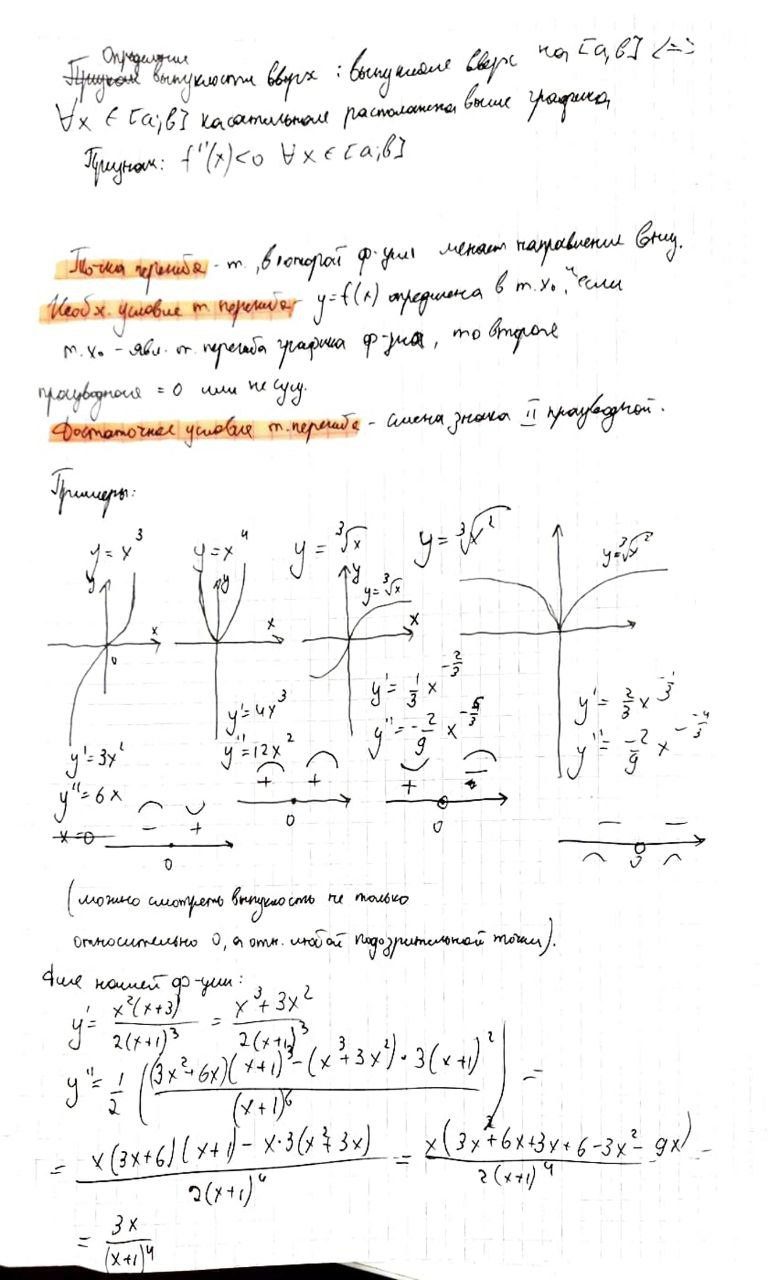 Определение
Признак выпуклости вверх : выпуклая вверх на [a,b] <=>
∀x ∈ [a;b] касательная расположена выше графика
Признак: f''(x)<0 ∀x ∈ [a;b]
Точка перегиба - т., в которой ф-ция меняет направление вып.
Необх. условие т. перегиба - y=f(x) определена в т. x₀, и если
т. x₀ - явл. т. перегиба графика ф-ции, то вторая
производная = 0 или не сущ.
Достаточное условие т. перегиба - смена знака II производной.
Примеры:
y = x³ y = x⁴ y = ∛x y = ∛x²
y y y y=∛x y=∛x²
x x x
0
y' = 3x² y' = 4x³ y' = 1/3 x^(-2/3) y' = 2/3 x^(-1/3)
y'' = 6x y'' = 12x² y'' = -2/9 x^(-5/3) y'' = -2/9 x^(-4/3)
x=0
- + + + + - - -
0 0 0 0
(можно смотреть выпуклость не только
относительно 0, а отн. любой подозрительной точки).
Для нашей ф-ции:
y' = x²(x+3) / 2(x+1)³ = x³+3x² / 2(x+1)³
y'' = 1/2 ( (3x²+6x)(x+1)³ - (x³+3x²)·3(x+1)² / (x+1)⁶ ) =
= x(3x+6)(x+1) - x·3(x²+3x) / 2(x+1)⁴ = x(3x²+6x+3x+6-3x²-9x) / 2(x+1)⁴ =
= 3x / (x+1)⁴